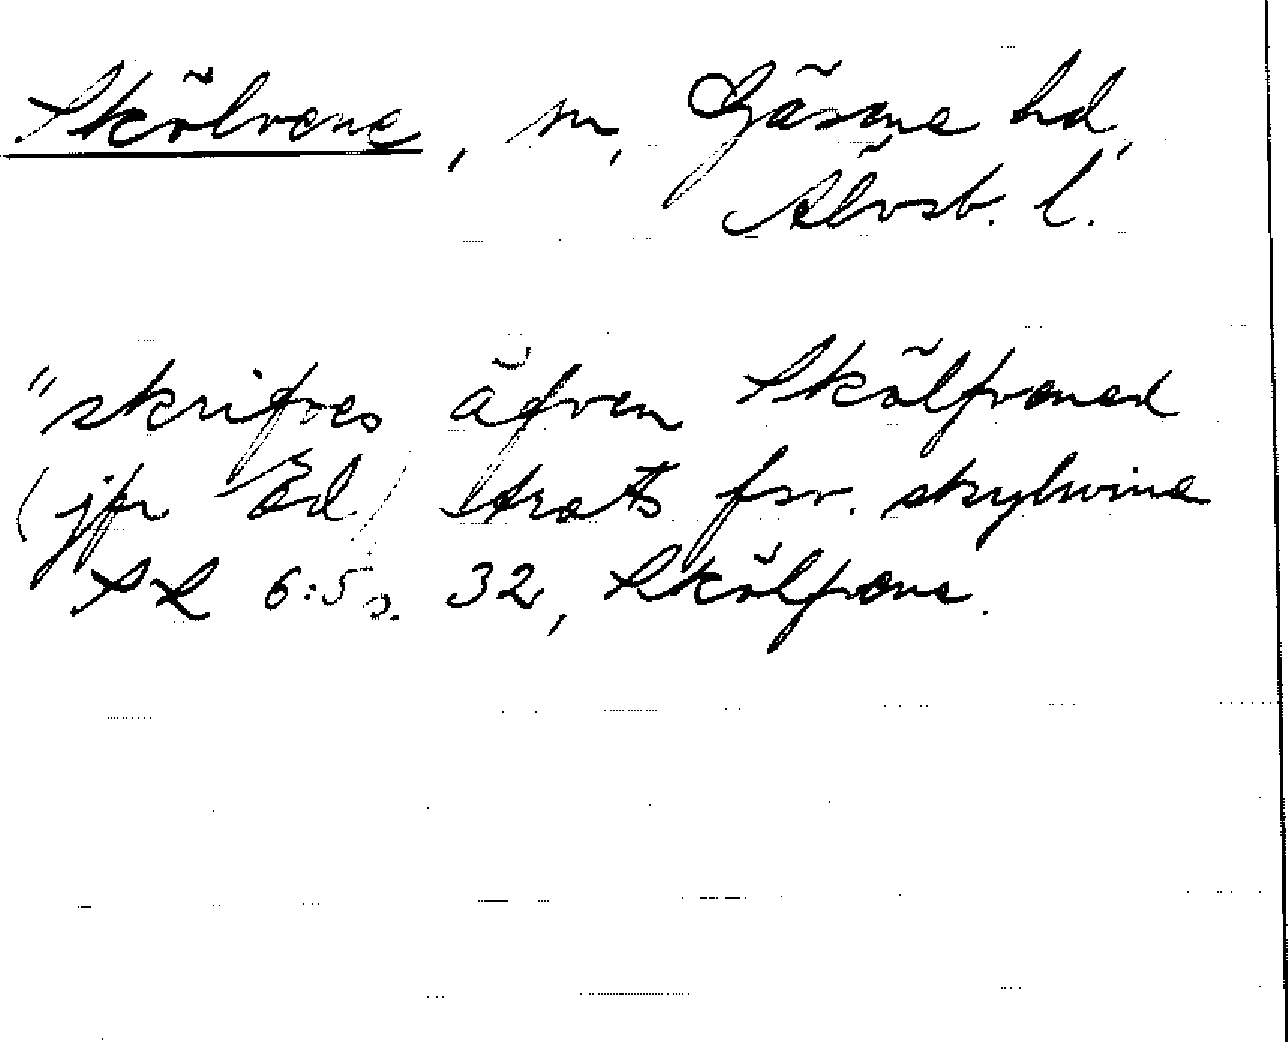 Skölvene, sn, Gäsene hd,
Älvsb. l.
"skrifves äfven Skölfvened
(jfr Ed) trots fsv. skylwina
SL 6:5 s. 32, Skölfvene.